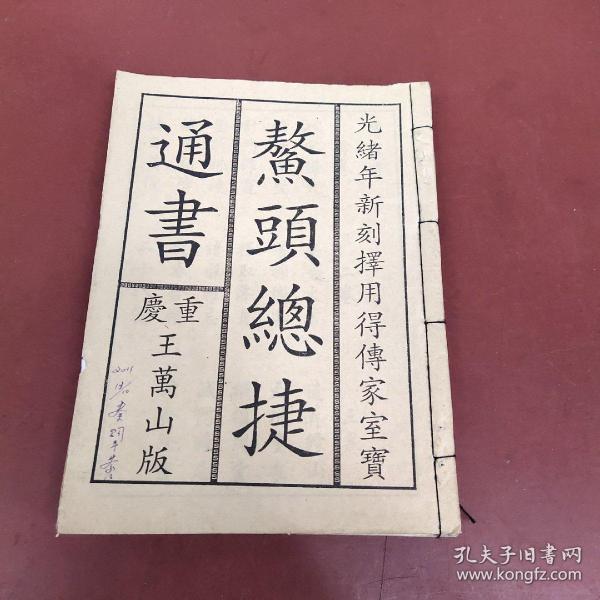 光緒年新刻擇用得傳家室寶
鰲頭總捷
通書
重慶
王萬山版
孔夫子旧书网
www.kongfz.com